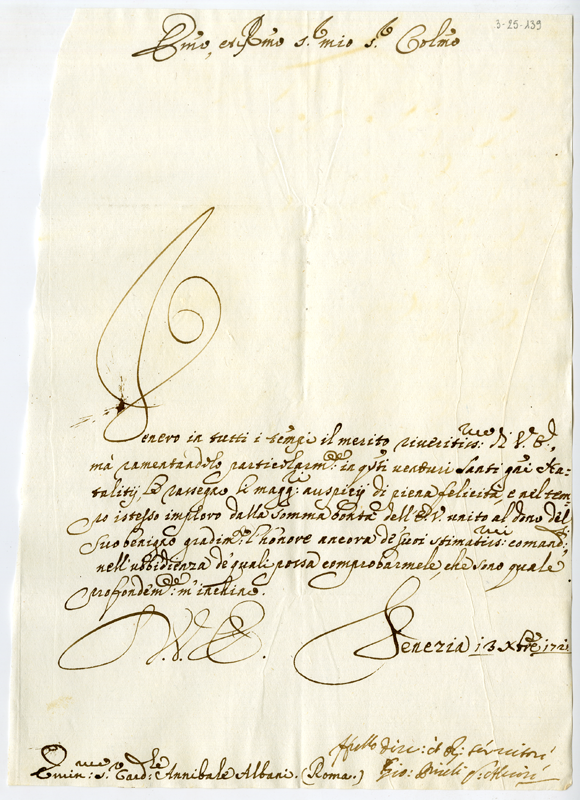 3-25-139
Emo, et Rmo Sr. mio Sr. Colmo
Venero in tutti i tempi il merito riveritiss:mo di V.E.,
mà ramentandolo particolarm.te in q.sti venturi Santi gni Na-
talitij, Le rassegno li magg:ri auspicij di piena felicità, e nel tem
po istesso imploro dalla somma bontà dell'E.V. unito al dono del
suo benigno gradim.to l'honore ancora de suoi stimatiss:mi comandi,
nell'ubbidienza de quali possa comprobarmele, che sono quale
profondem.te m'inchino.
D. V. E.
Venezia 13 Xbre 172
Emin:mo Sr. Card:le Annibale Albani. (Roma.)
Gio: